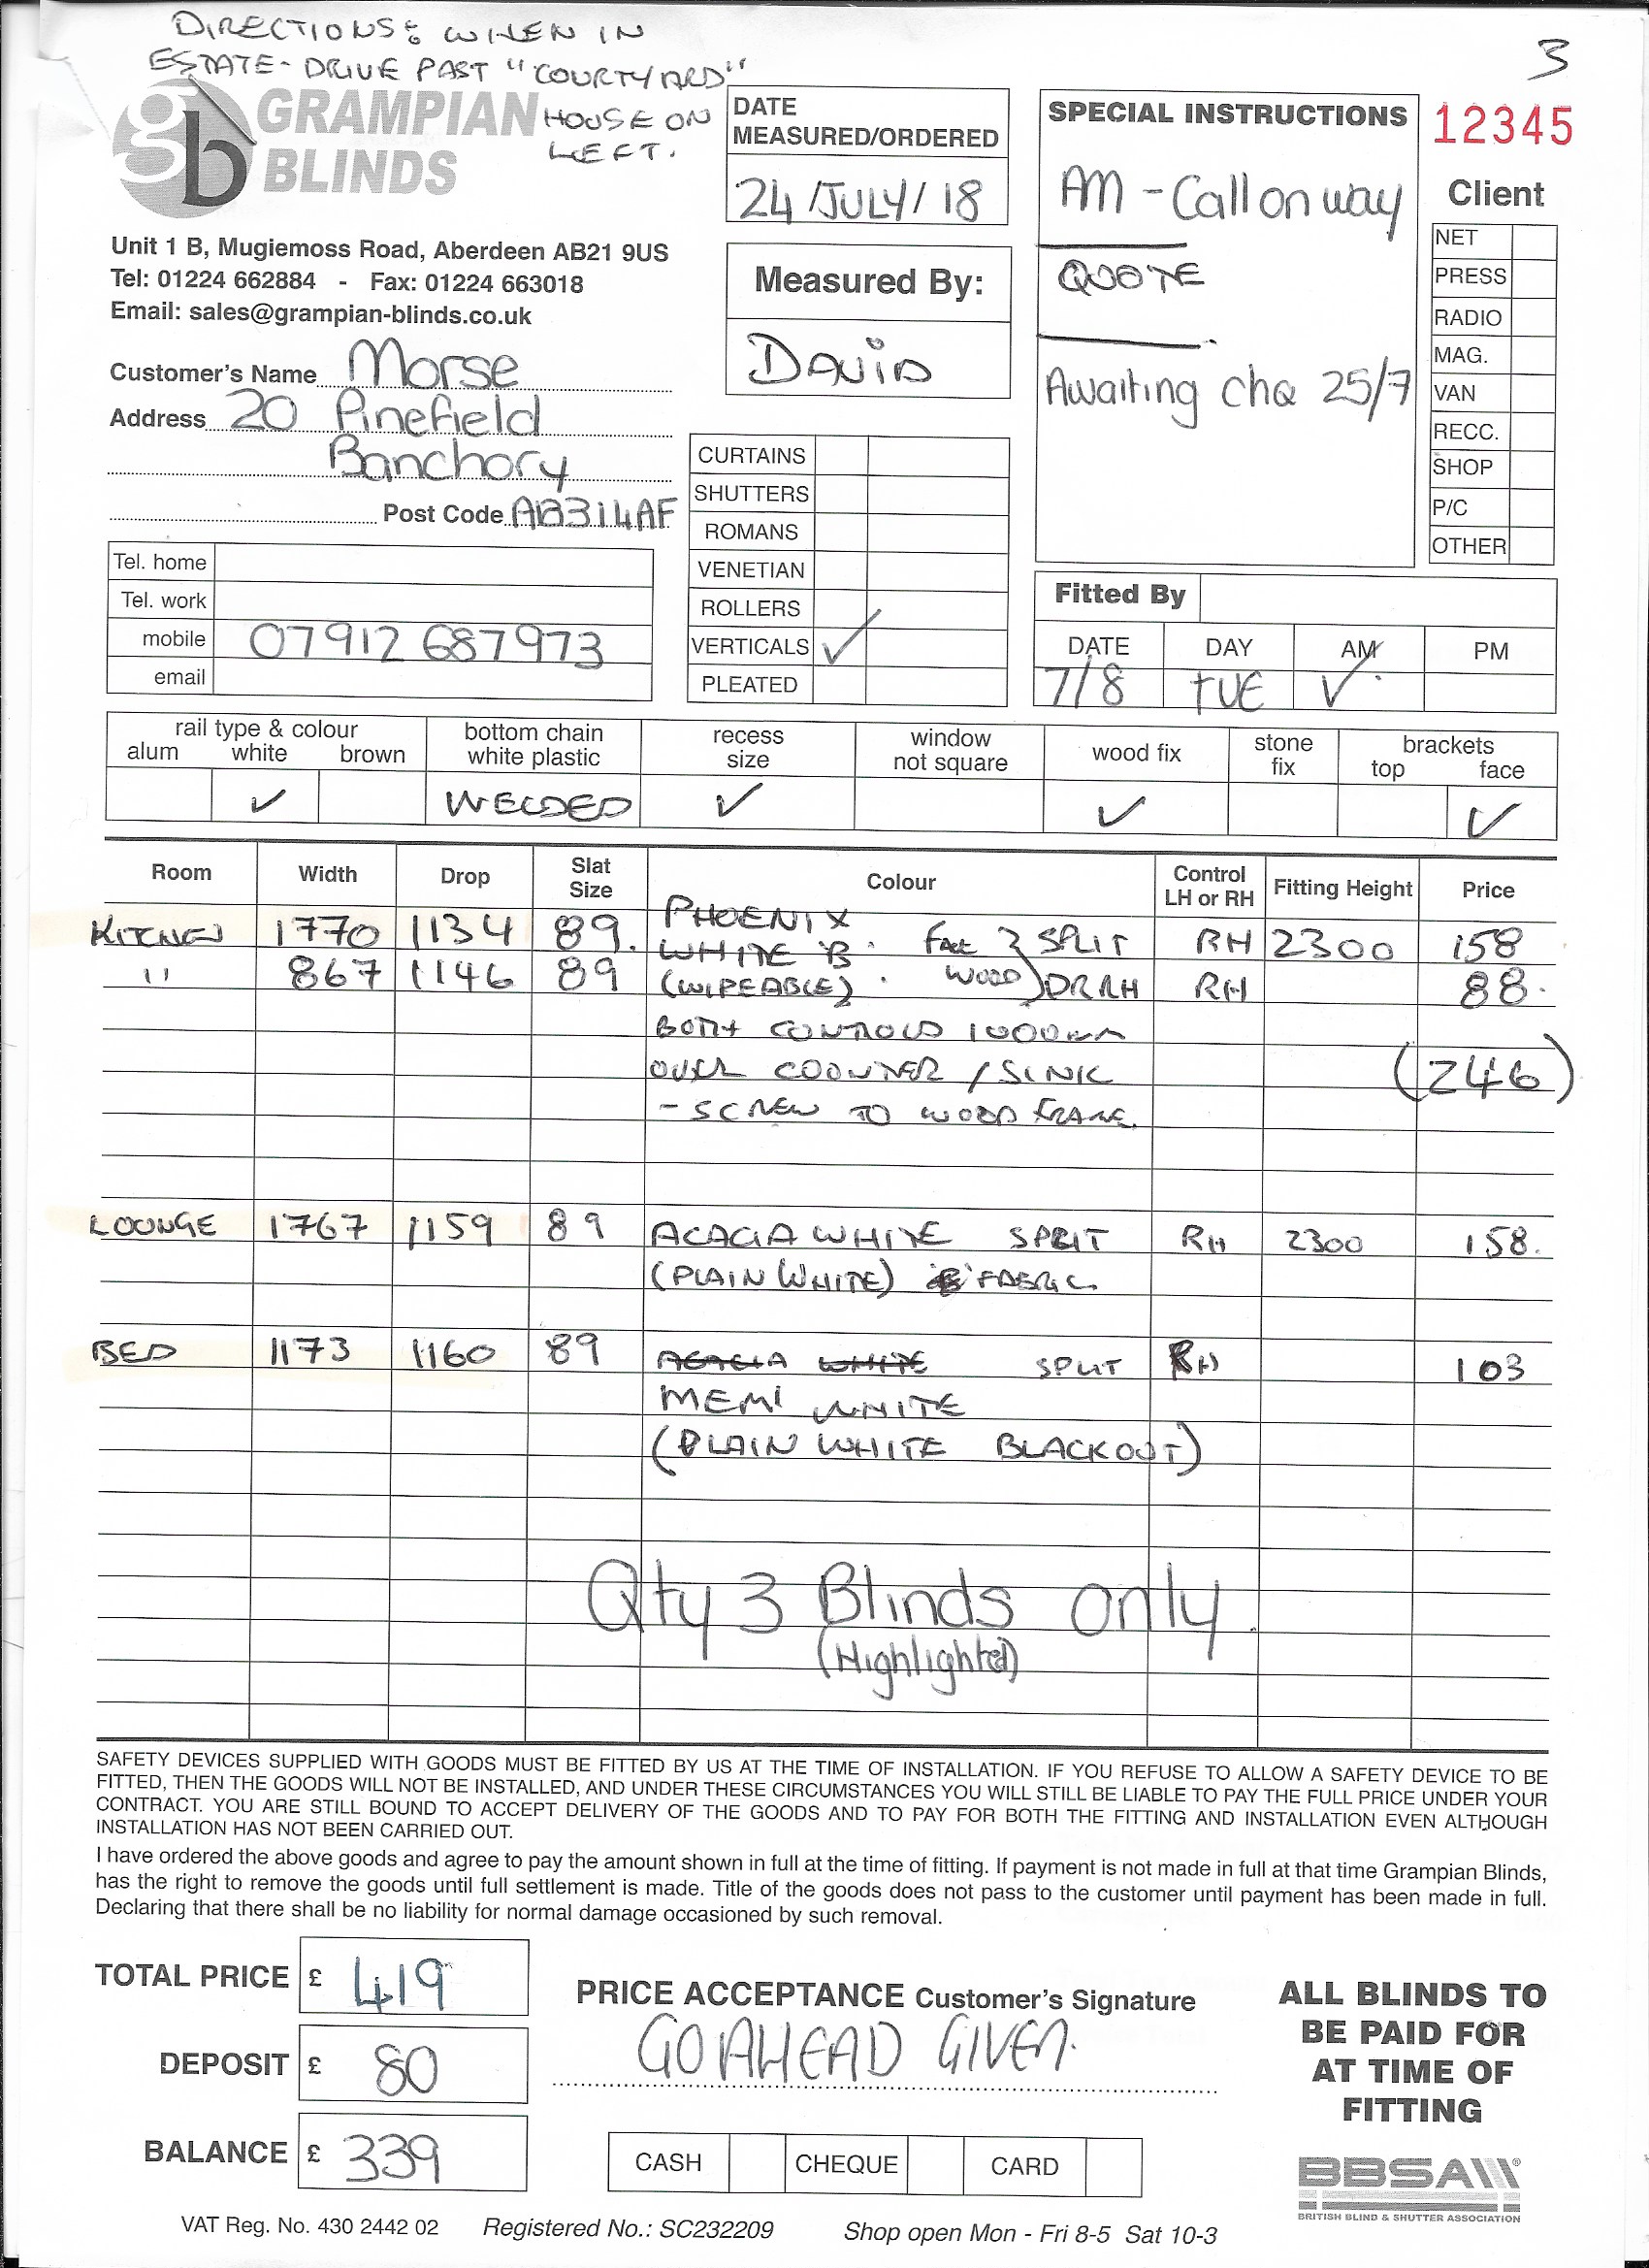 DIRECTIONS: WHEN IN
ESTATE - DRIVE PAST "COURTYARD"
HOUSE ON
LEFT.
3
gb GRAMPIAN
BLINDS
Unit 1 B, Mugiemoss Road, Aberdeen AB21 9US
Tel: 01224 662884 - Fax: 01224 663018
Email: sales@grampian-blinds.co.uk
Customer's Name Morse
Address 20 Pinefield
Banchory
Post Code AB31 4AF
Tel. home
Tel. work
mobile 07912 687973
email
DATE
MEASURED/ORDERED
24/JULY/18
Measured By:
DAVID
CURTAINS
SHUTTERS
ROMANS
VENETIAN
ROLLERS
VERTICALS ✓
PLEATED
SPECIAL INSTRUCTIONS
AM - Call on way
QUOTE
Awaiting chq 25/7
12345
Client
NET
PRESS
RADIO
MAG.
VAN
RECC.
SHOP
P/C
OTHER
Fitted By
DATE DAY AM PM
7/8 TUE ✓
rail type & colour bottom chain recess window wood fix stone brackets
alum white brown white plastic size not square fix top face
✓ WELDED ✓ ✓ ✓
Room Width Drop Slat Size Colour Control LH or RH Fitting Height Price
KITCHEN 1770 1134 89. PHOENIX WHITE B. FACE SPLIT RH 2300 158
" 867 1146 89 (WIPEABLE) WOOD DRRH RH 88.
BOTH CONTROLS 1000mm
OVER COUNTER / SINK (246)
- SCREW TO WOOD FRAME.
LOUNGE 1767 1159 89 ACACIA WHITE SPLIT RH 2300 158.
(PLAIN WHITE) FABRIC
BED 1173 1160 89 ACACIA WHITE SPLIT RH 103
MEMI WHITE
(PLAIN WHITE BLACKOUT)
Qty 3 Blinds only.
(Highlighted)
SAFETY DEVICES SUPPLIED WITH GOODS MUST BE FITTED BY US AT THE TIME OF INSTALLATION. IF YOU REFUSE TO ALLOW A SAFETY DEVICE TO BE
FITTED, THEN THE GOODS WILL NOT BE INSTALLED, AND UNDER THESE CIRCUMSTANCES YOU WILL STILL BE LIABLE TO PAY THE FULL PRICE UNDER YOUR
CONTRACT. YOU ARE STILL BOUND TO ACCEPT DELIVERY OF THE GOODS AND TO PAY FOR BOTH THE FITTING AND INSTALLATION EVEN ALTHOUGH
INSTALLATION HAS NOT BEEN CARRIED OUT.
I have ordered the above goods and agree to pay the amount shown in full at the time of fitting. If payment is not made in full at that time Grampian Blinds,
has the right to remove the goods until full settlement is made. Title of the goods does not pass to the customer until payment has been made in full.
Declaring that there shall be no liability for normal damage occasioned by such removal.
TOTAL PRICE £ 419
DEPOSIT £ 80
BALANCE £ 339
PRICE ACCEPTANCE Customer's Signature
GO AHEAD GIVEN.
CASH CHEQUE CARD
ALL BLINDS TO
BE PAID FOR
AT TIME OF
FITTING
BBSA®
BRITISH BLIND & SHUTTER ASSOCIATION
VAT Reg. No. 430 2442 02 Registered No.: SC232209 Shop open Mon - Fri 8-5 Sat 10-3